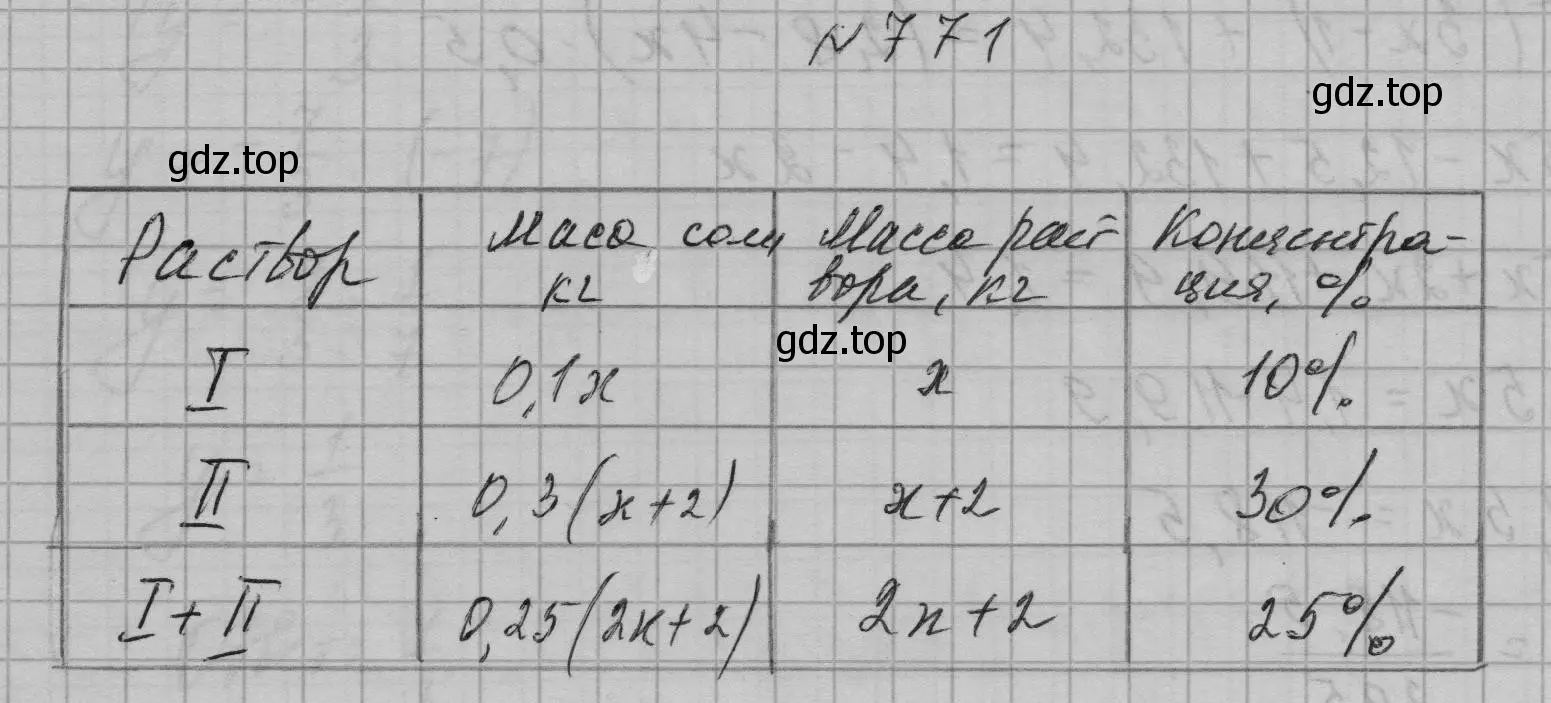 № 771
gdz.top
gdz.top
Раствор | Маса соли, кг | Масса раст вора, кг | Концентра- ция, %
gdz.top
I | 0,1x | x | 10%
II | 0,3(x+2) | x+2 | 30%
I + II | 0,25(2x+2) | 2x+2 | 25%